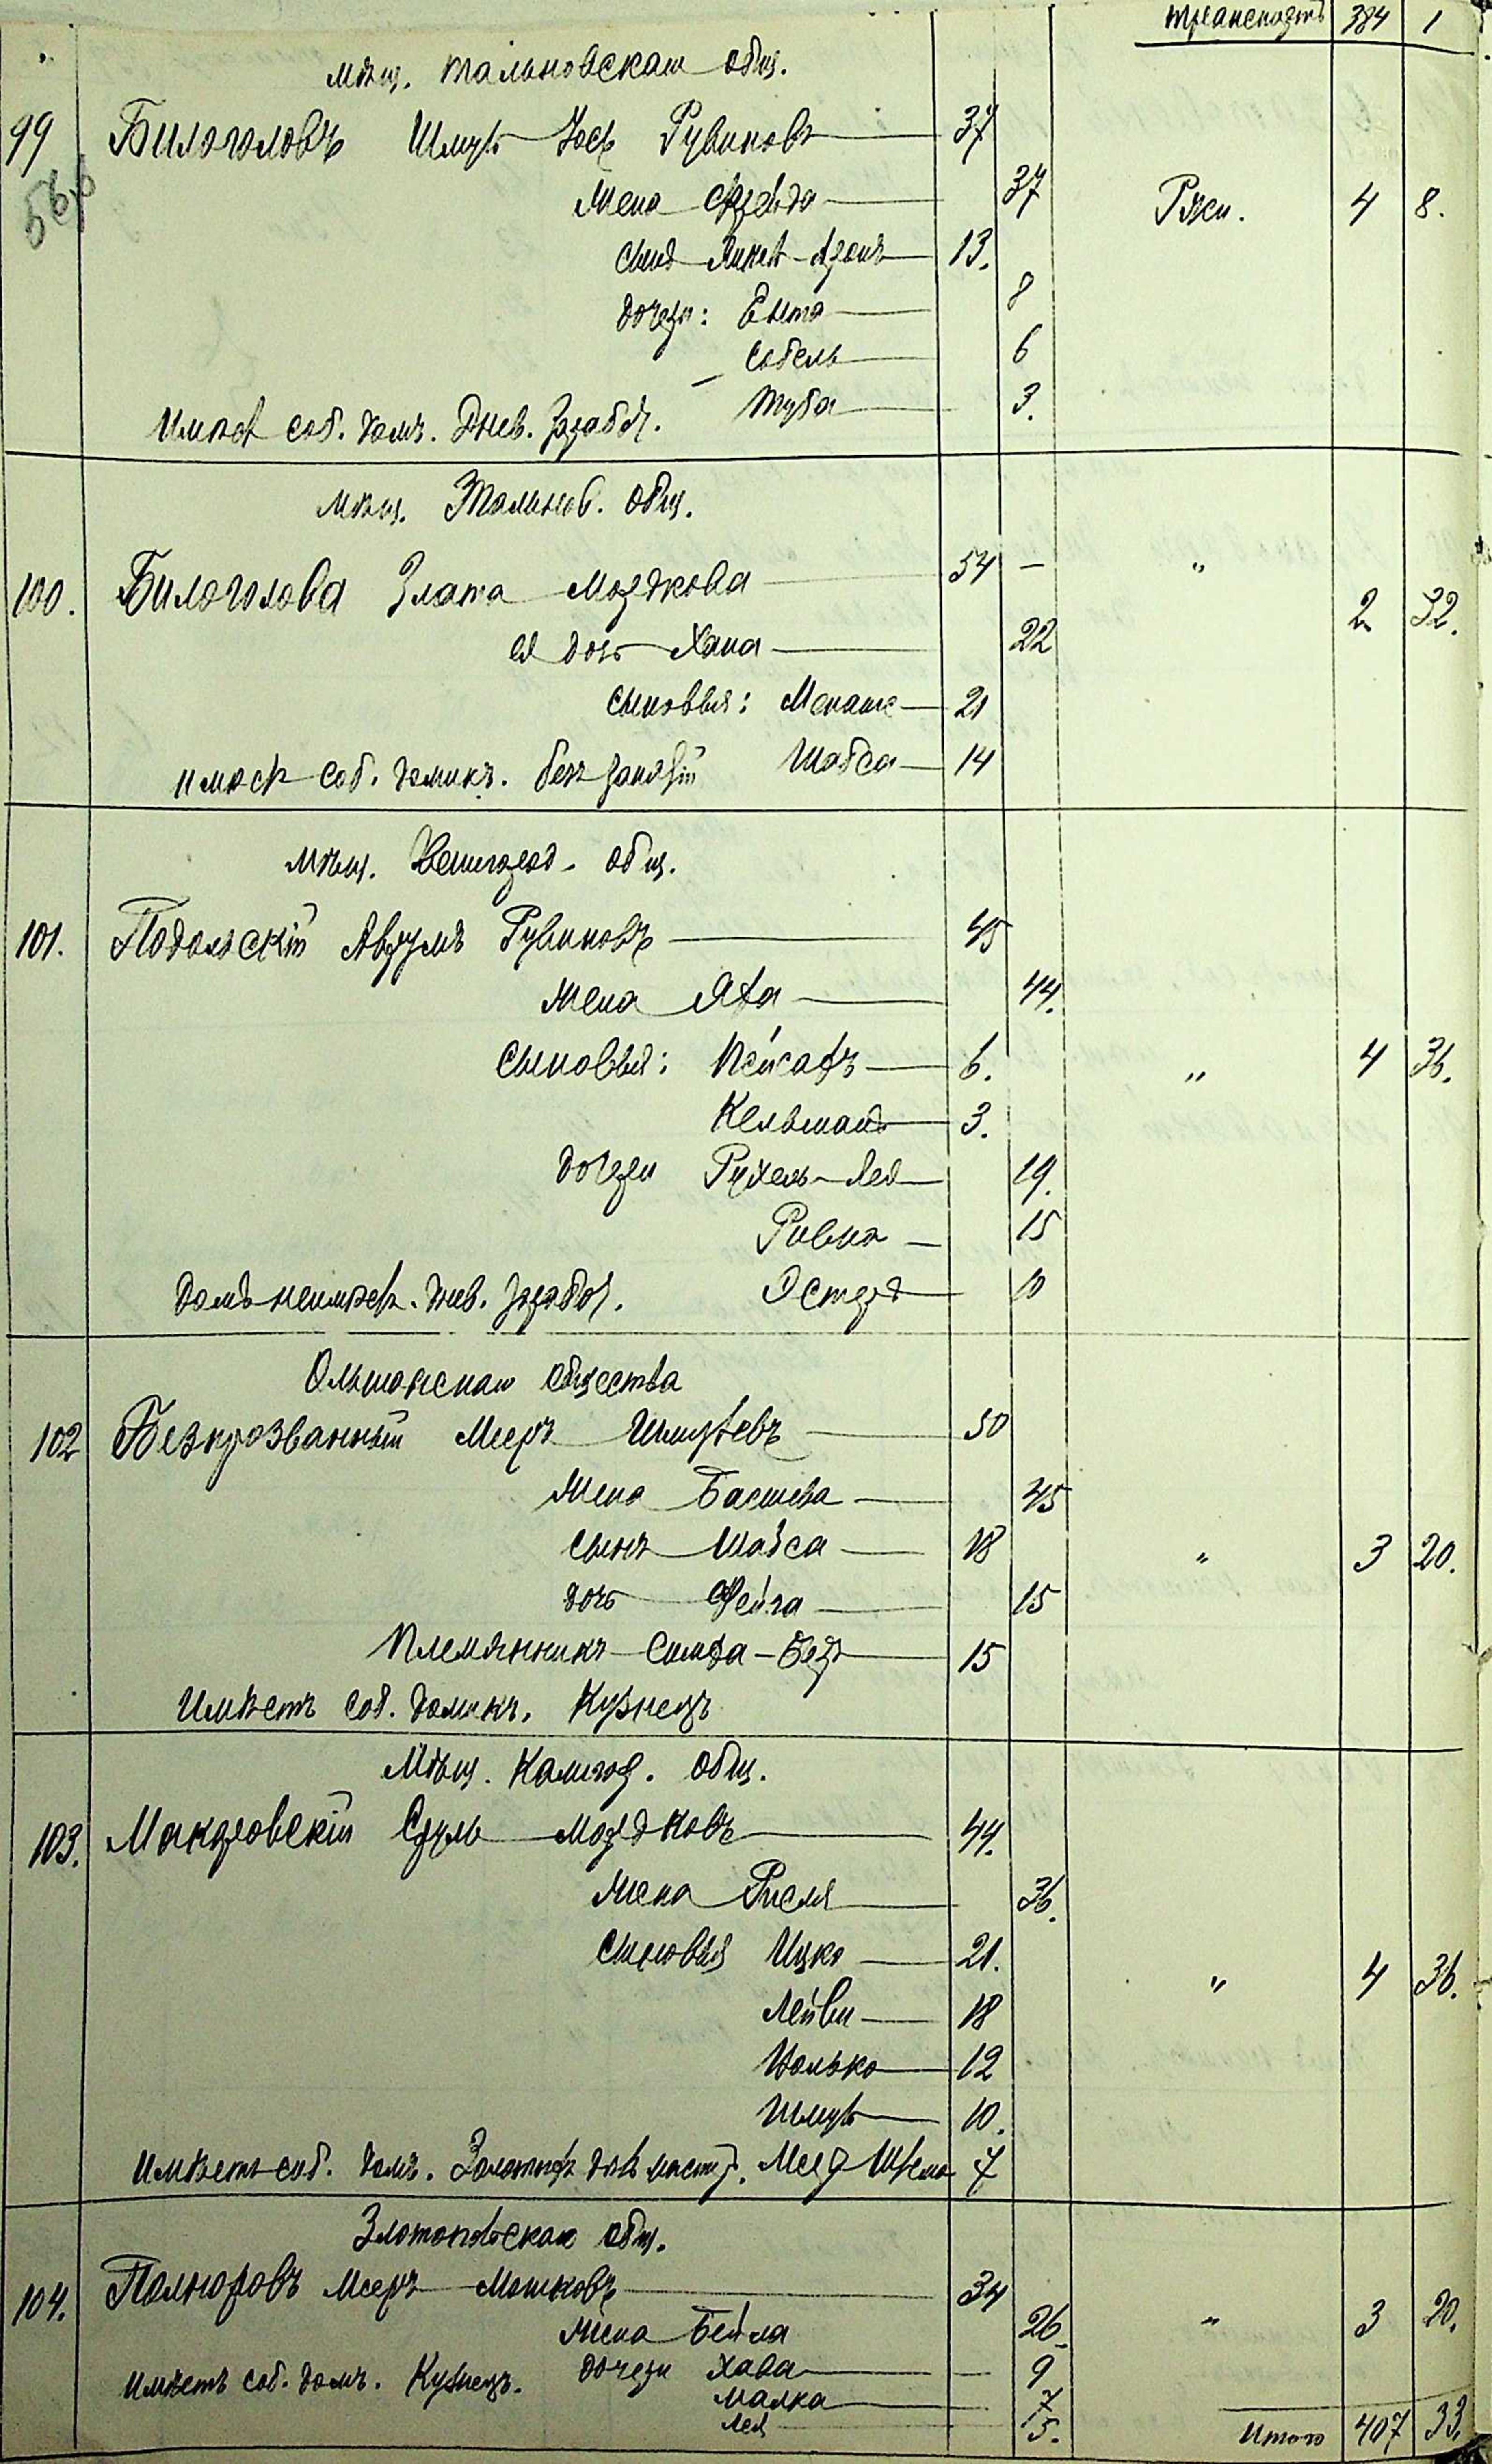 транспортъ 384 1
мѣщ. тальновскаго общ.
99 Билоголовъ Шмуль Іось Рувиновъ 37
56,6
жена Фрейда 37 Ржищ. 4 8.
сынъ Янкель-Аронъ 13.
дочери: Ента 8
Собель 6
Туба 3.
Имѣет соб. домъ. Днев. заработ.
мѣщ. Тальнов. общ.
100. Билоголова Злата Мордкова 54 — " 2 32.
ея дочь Хана 22
сыновья: Менаше 21
имѣет соб. домикъ. безъ занятій Шабса 14
мѣщ. Звенигород. общ.
101. Подольскій Аврумъ Рувиновъ 45
жена Яха 44.
Сыновья: Пейсахъ 6. " 4 36.
Кельманъ 3.
дочери Рухель-Лея 19.
Ривка 15
домъ неимѣет. днев. заработ. Эстеръ 10
Ольшанскаго общества
102 Безпрозванный Мееръ Шмулевъ 50
жена Басшева 45
сынъ Шабса 18 " 3 20.
дочь Фейга 15
Племянникъ Симха-Беръ 15
Имѣетъ соб. домикъ. Кузнецъ
Мѣщ. Калигор. общ.
103. Макаровскій Сруль Мордковъ 44.
жена Рися 36.
сыновья Ицко 21.
Лейви 18 " 4 36.
Іолько 12
Шмуль 10.
Имѣетъ соб. домъ. Золотыхъ дѣлъ мастер. Меер Шлема 7
Златопольскаго общ.
104. Полноровъ Мееръ Мошковъ 34
жена Бейла 26 " 3 20.
Имѣетъ соб. домъ. Кузнецъ. дочери Хава — 9
Малка 7
Лея 5.
Итого 407 33.